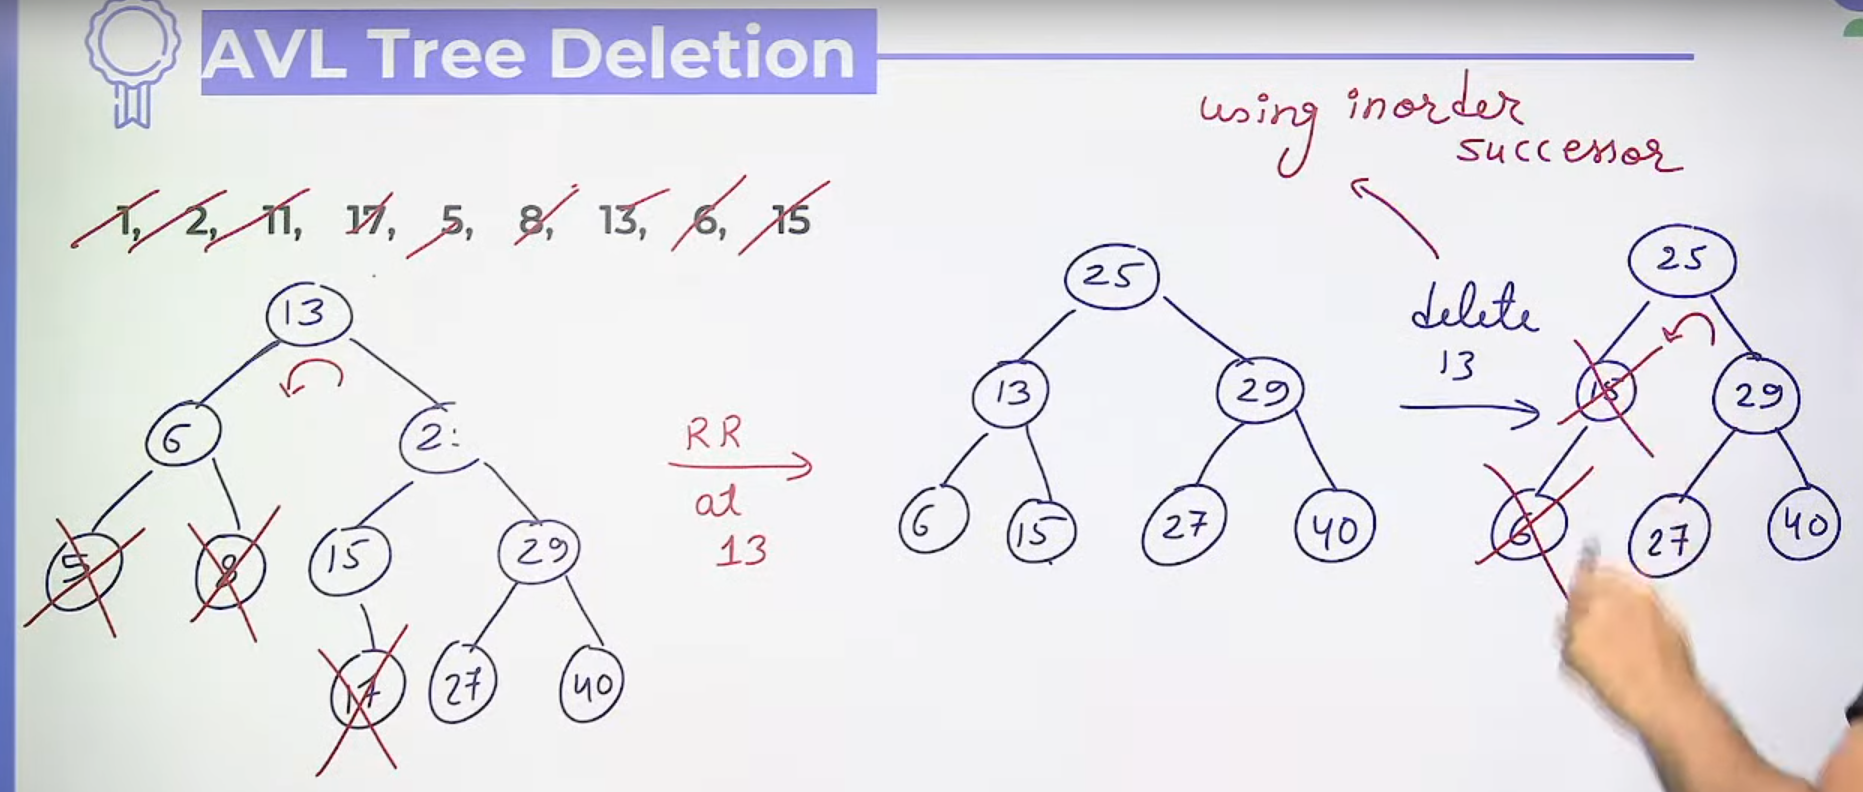 AVL Tree Deletion
using inorder
successor
1, 2, 11, 17, 5, 8, 13, 6, 15
13
6
2:
5
8
15
29
17
27
40
RR
at
13
25
13
29
6
15
27
40
delete
13
25
15
29
6
27
40